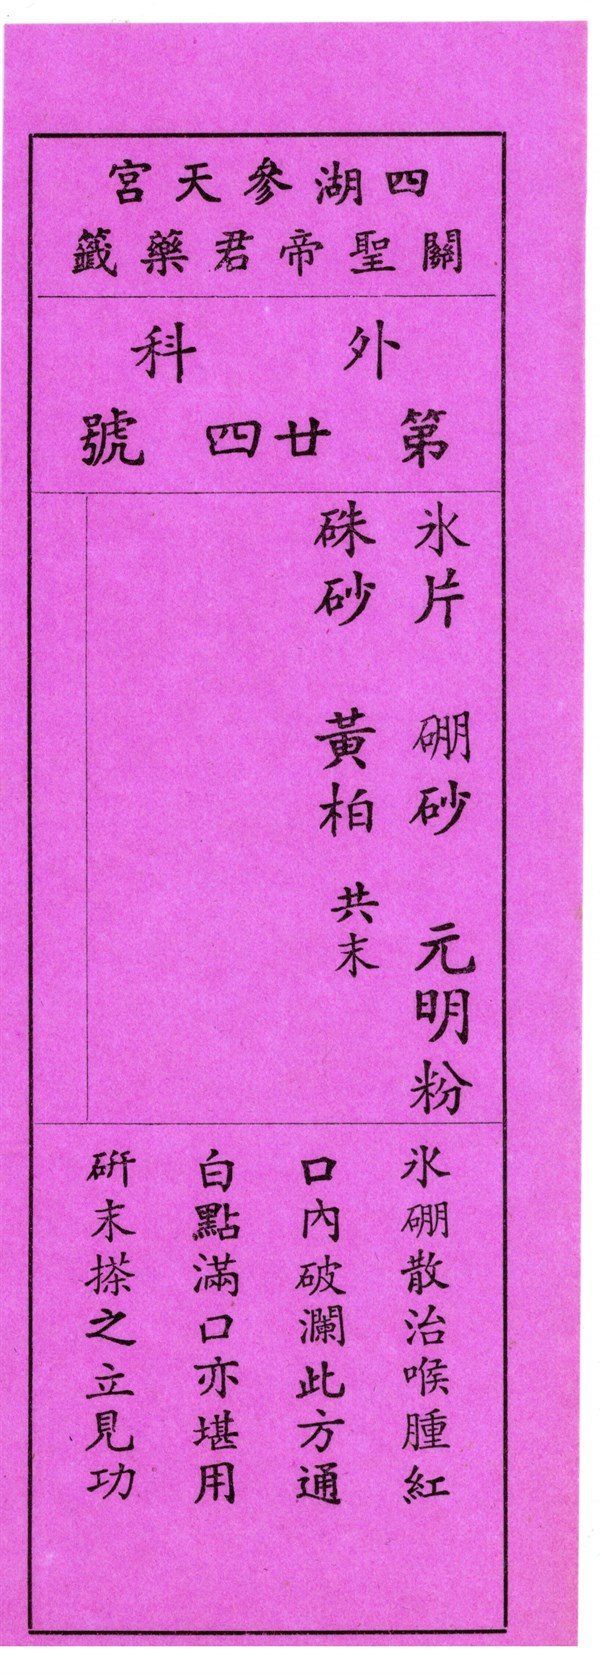 四湖參天宮
關聖帝君藥籤
外科
第廿四號
氷片 硼砂 元明粉
硃砂 黃柏 共末
氷硼散治喉腫紅
口內破瀾此方通
白點滿口亦堪用
研末搽之立見功